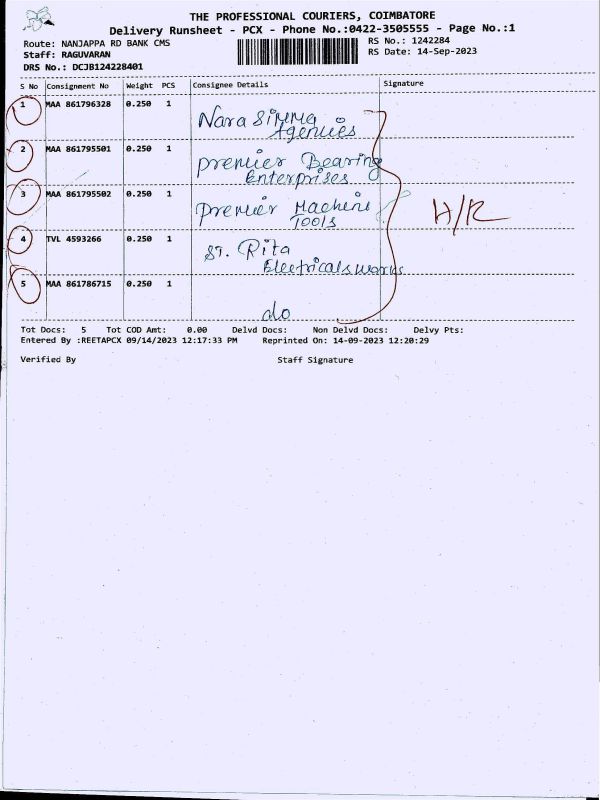 THE PROFESSIONAL COURIERS, COIMBATORE
Delivery Runsheet - PCX - Phone No.:0422-3505555 - Page No.:1
Route: NANJAPPA RD BANK CMS
RS No.: 1242284
Staff: RAGUVARAN
RS Date: 14-Sep-2023
DRS No.: DCJB124228401
S No Consignment No Weight PCS Consignee Details Signature
1 MAA 861796328 0.250 1 Nara Simma
Agencies
2 MAA 861795501 0.250 1 Premier Bearing
Enterprises
3 MAA 861795502 0.250 1 Premier Machine
Tools
H/R
4 TVL 4593266 0.250 1 ST. Rita
Electricals works
5 MAA 861786715 0.250 1
do
Tot Docs: 5 Tot COD Amt: 0.00 Delvd Docs: Non Delvd Docs: Delvy Pts:
Entered By :REETAPCX 09/14/2023 12:17:33 PM Reprinted On: 14-09-2023 12:20:29
Verified By Staff Signature